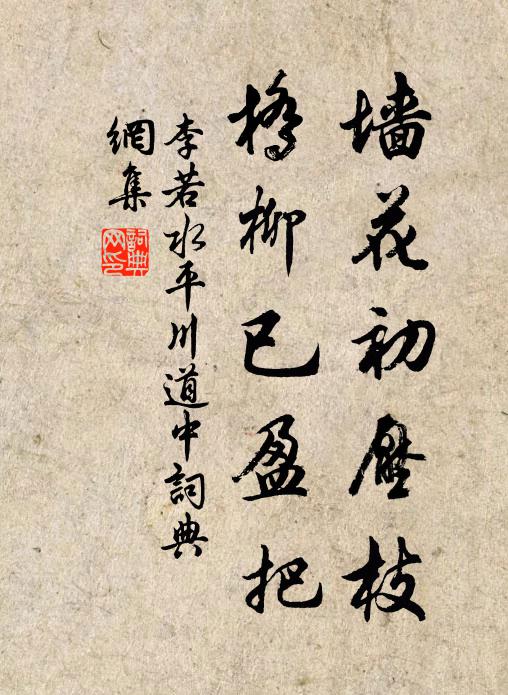 墙花初压枝
桥柳已盈把
李若水平川道中詞典
網集
詞典
网印